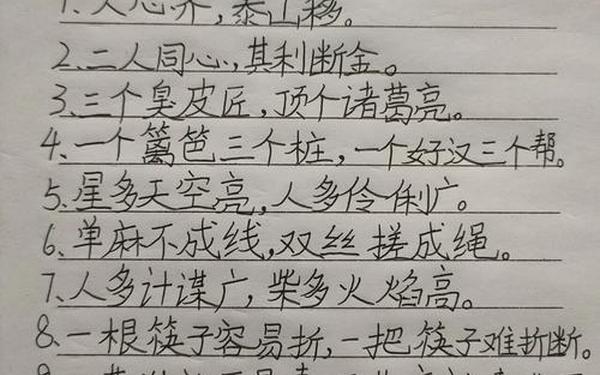 1.人心齐，泰山移。
2、二人同心，其利断金。
3、三个臭皮匠，顶个诸葛亮。
4、一个篱笆三个桩，一个好汉三个帮。
5、星多天空亮，人多伶俐广。
6、单麻不成线，双丝搓成绳。
7、人多计谋广，柴多火焰高。
8、一根筷子容易折，一把筷子难折断。